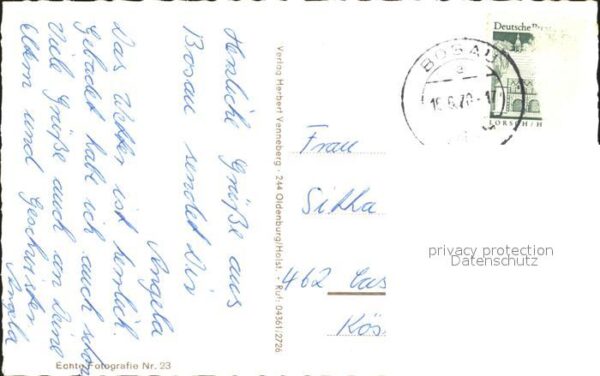 Herzliche Grüße aus
Bosau sendet Dir
Angela
Das Wetter ist herrlich.
Gebadet habe ich auch schon
Viele Grüße auch an Deine
Eltern und Geschwister
Angela
Echte Fotografie Nr. 23
Verlag Herbert Venneberg · 244 Oldenburg/Holst. · Ruf: 04361/2726
Deutsche
LORSCH/H
BOSAU
a
Frau
462 Cas
Kös
privacy protection
Datenschutz